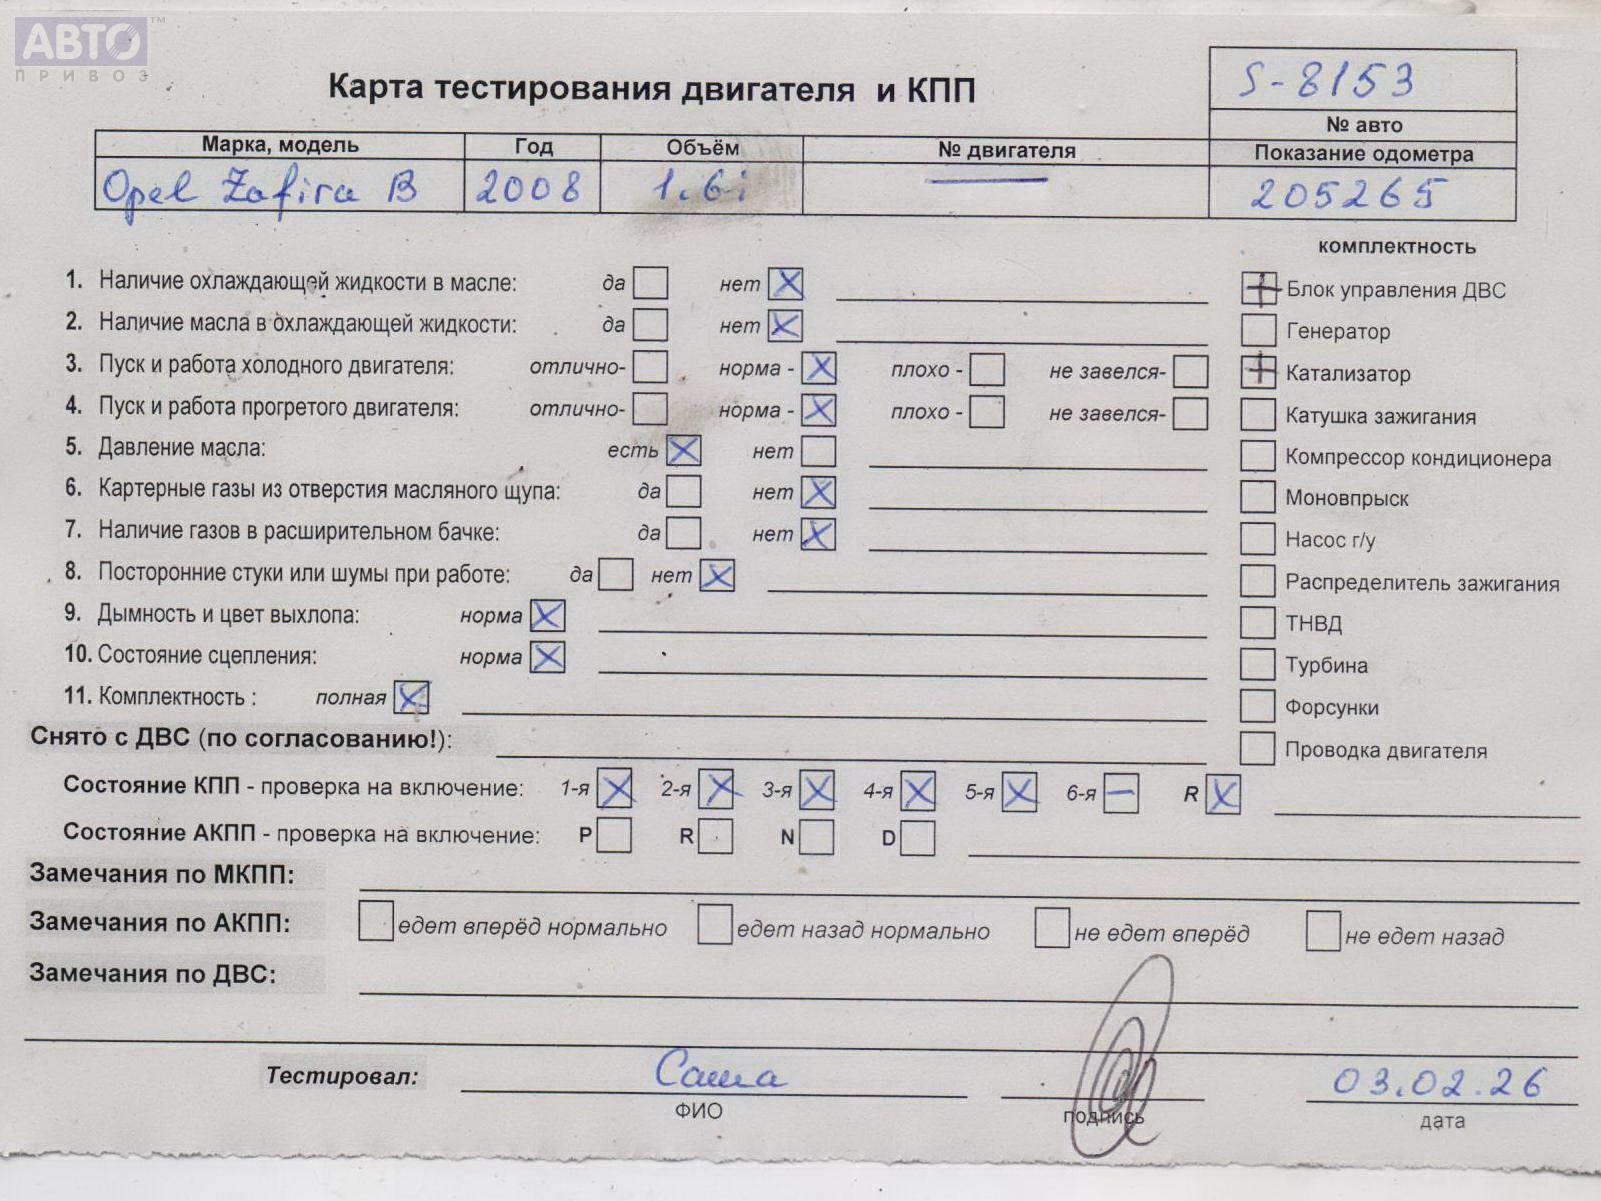 АВТО™
ПРИВОЗ
Карта тестирования двигателя и КПП
S-8153
№ авто
Марка, модель Год Объём № двигателя Показание одометра
Opel Zafira B 2008 1.6i — 205265
комплектность
1. Наличие охлаждающей жидкости в масле: да нет X
Блок управления ДВС
2. Наличие масла в охлаждающей жидкости: да нет X
Генератор
3. Пуск и работа холодного двигателя: отлично- норма - X плохо - не завелся-
Катализатор
4. Пуск и работа прогретого двигателя: отлично- норма - X плохо - не завелся-
Катушка зажигания
5. Давление масла: есть X нет
Компрессор кондиционера
6. Картерные газы из отверстия масляного щупа: да нет X
Моновпрыск
7. Наличие газов в расширительном бачке: да нет X
Насос г/у
8. Посторонние стуки или шумы при работе: да нет X
Распределитель зажигания
9. Дымность и цвет выхлопа: норма X
ТНВД
10. Состояние сцепления: норма X
Турбина
11. Комплектность : полная X
Форсунки
Снято с ДВС (по согласованию!):
Проводка двигателя
Состояние КПП - проверка на включение: 1-я X 2-я X 3-я X 4-я X 5-я X 6-я — R X
Состояние АКПП - проверка на включение: P R N D
Замечания по МКПП:
Замечания по АКПП: едет вперёд нормально едет назад нормально не едет вперёд не едет назад
Замечания по ДВС:
Тестировал: Саша 03.02.26
ФИО подпись дата